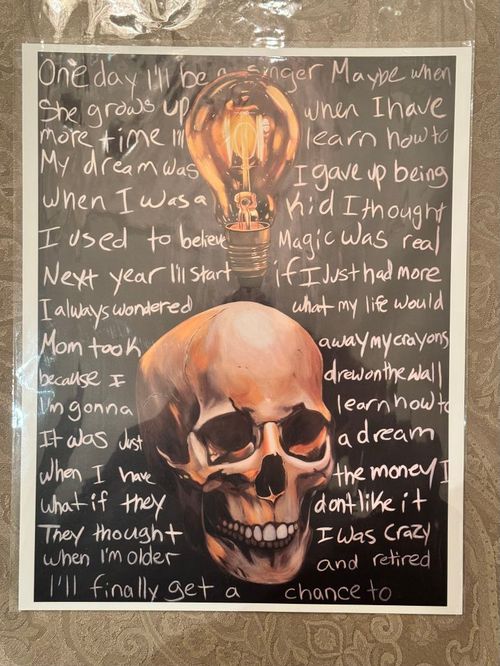 One day I'll be a singer Maybe when
She grows up when I have
more time I'll learn how to
My dream was I gave up being
when I was a kid I thought
I used to believe Magic was real
Next year I'll start if I Just had more
I always wondered what my life would
Mom took away my crayons
because I drew on the wall
I'm gonna learn how to
It was Just a dream
when I have the money I
what if they dont like it
They thought I was Crazy
when I'm older and retired
I'll finally get a chance to